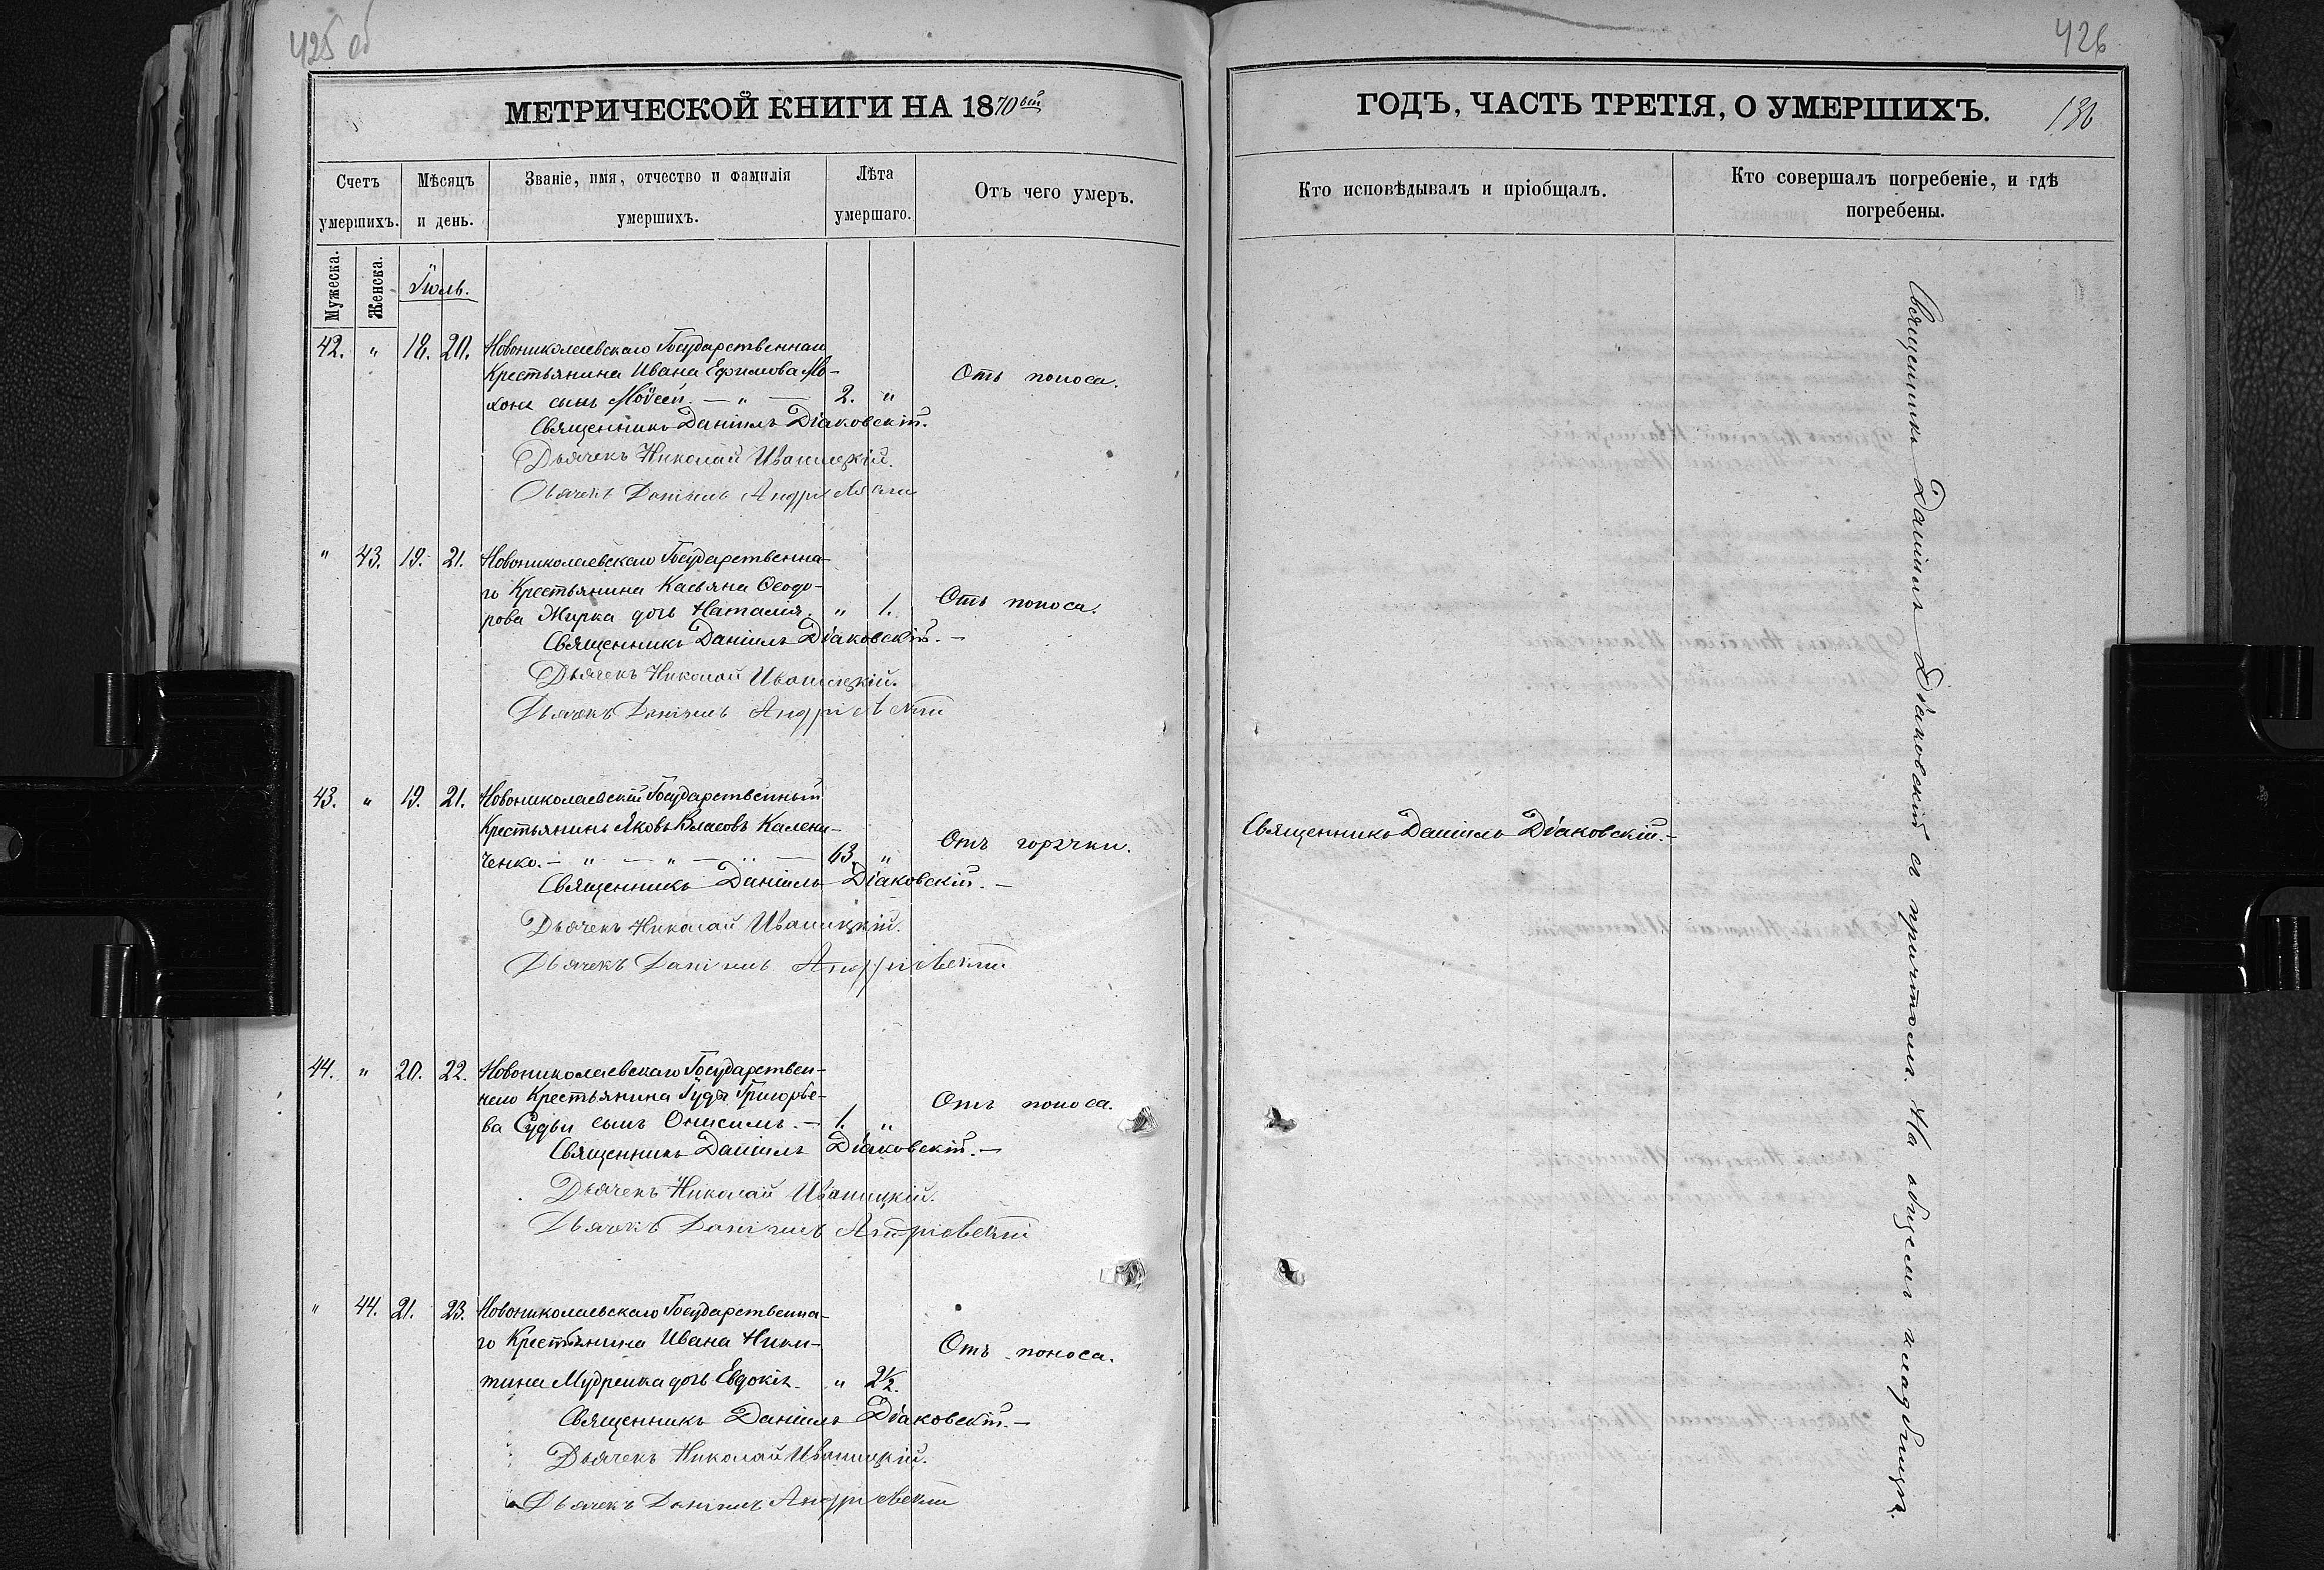 425 об
МЕТРИЧЕСКОЙ КНИГИ НА 1870ый
Счетъ умершихъ.
Мѣсяцъ и день.
Званіе, имя, отчество и фамилія умершихъ.
Лѣта умершаго.
Отъ чего умеръ.
Мужеска.
Женска.
Іюль.
42. " 18. 20. Новониколаевскаго Государственнаго
Крестьянина Ивана Ефимова Мо-
сынъ Моѵсей. — " — 2. "
Отъ поноса.
Священникъ Даніилъ Діаковскій.
Дьячекъ Николай Иваницкій.
Дьячекъ Даніилъ Андріевскій
" 43. 19. 21. Новониколаевскаго Государственна-
го Крестьянина Касьяна Ѳеодо-
рова Мирка дочь Наталія. " 1.
Отъ поноса.
Священникъ Даніилъ Діаковскій. —
Дьячекъ Николай Иваницкій.
Дьячекъ Даніилъ Андріевскій
43. " 19. 21. Новониколаевскій Государственный
Крестьянинъ Яковъ Власовъ Калени-
ченко. — " — " — " — 63. "
Отъ горячки.
Священникъ Даніилъ Діаковскій. —
Дьячекъ Николай Иваницкій.
Дьячекъ Даніилъ Андріевскій
44. " 20. 22. Новониколаевскаго Государствен-
наго Крестьянина Іуды Григорье-
ва Судьи сынъ Онисимъ. — 1. "
Отъ поноса.
Священникъ Даніилъ Діаковскій. —
Дьячекъ Николай Иваницкій.
Дьячекъ Даніилъ Андріевскій
" 44. 21. 23. Новониколаевскаго Государственна-
го Крестьянина Ивана Ники-
тина Мудренка дочь Евдокія. " 2½.
Отъ поноса.
Священникъ Даніилъ Діаковскій. —
Дьячекъ Николай Иваницкій.
Дьячекъ Даніилъ Андріевскій
426
ГОДЪ, ЧАСТЬ ТРЕТІЯ, О УМЕРШИХЪ.
136
Кто исповѣдывалъ и пріобщалъ.
Кто совершалъ погребеніе, и гдѣ
погребены.
Священникъ Даніилъ Діаковскій. —
Священникъ Даніилъ Діаковскій съ причтомъ. На общемъ кладбищѣ.